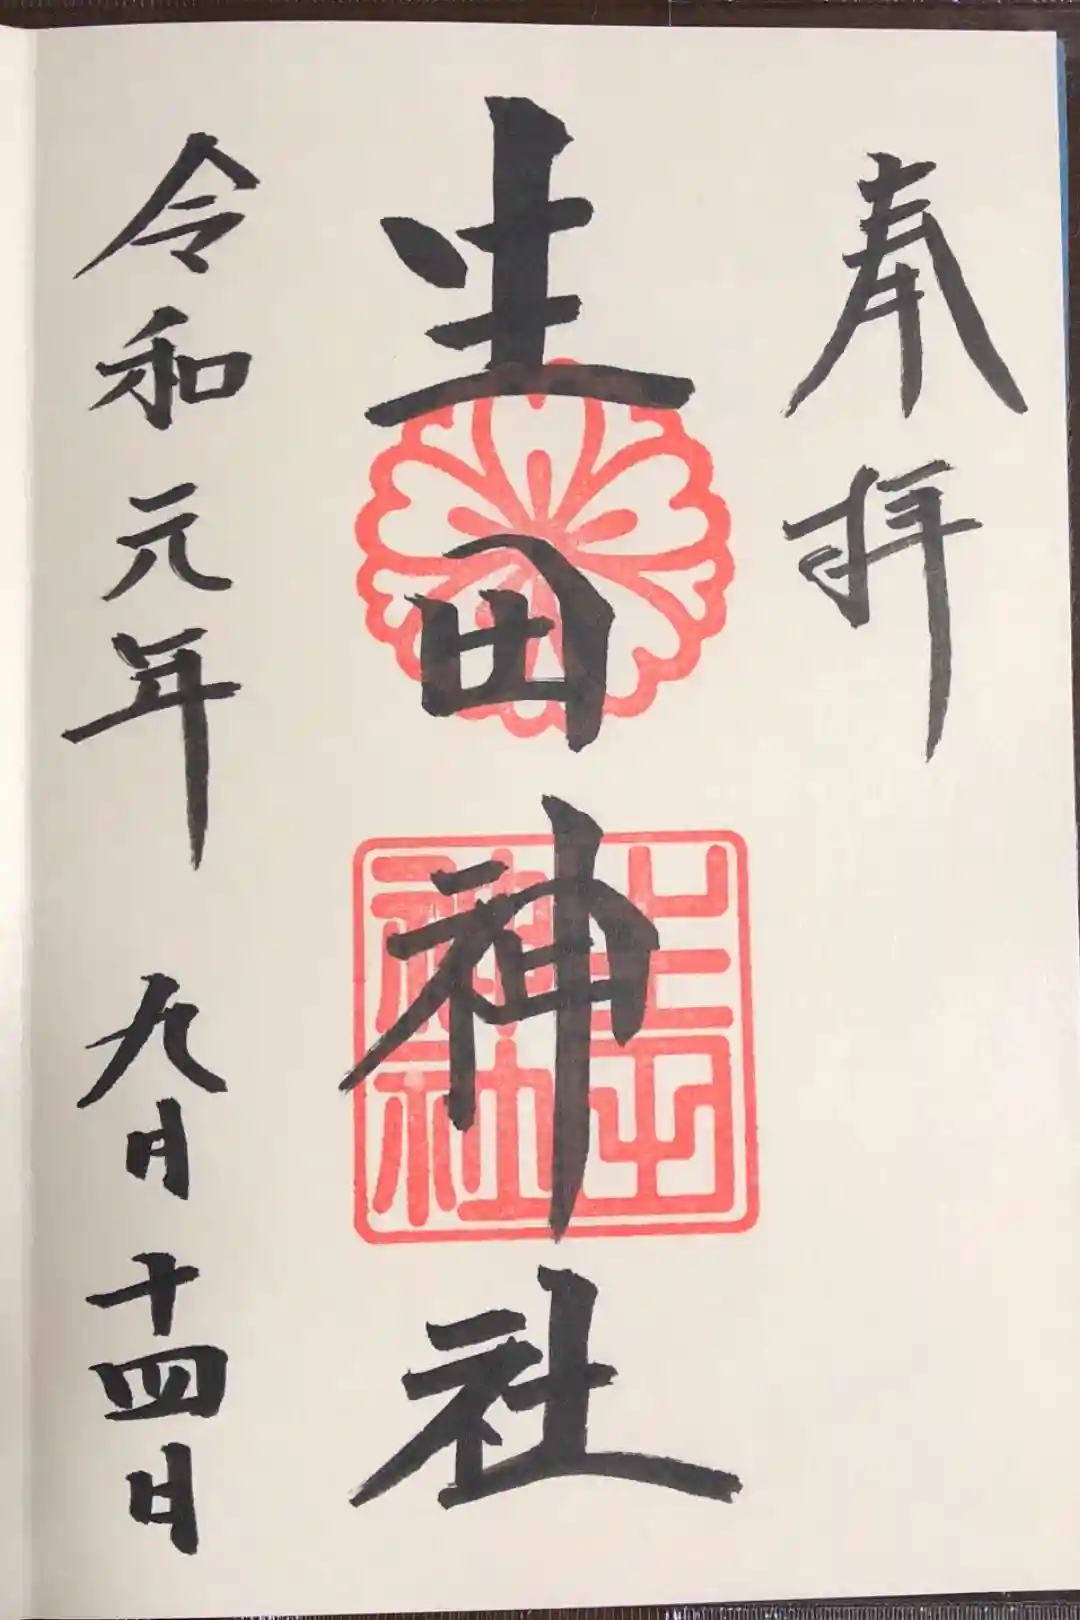 奉拝
生田神社
生田神社
令和元年 九月十四日